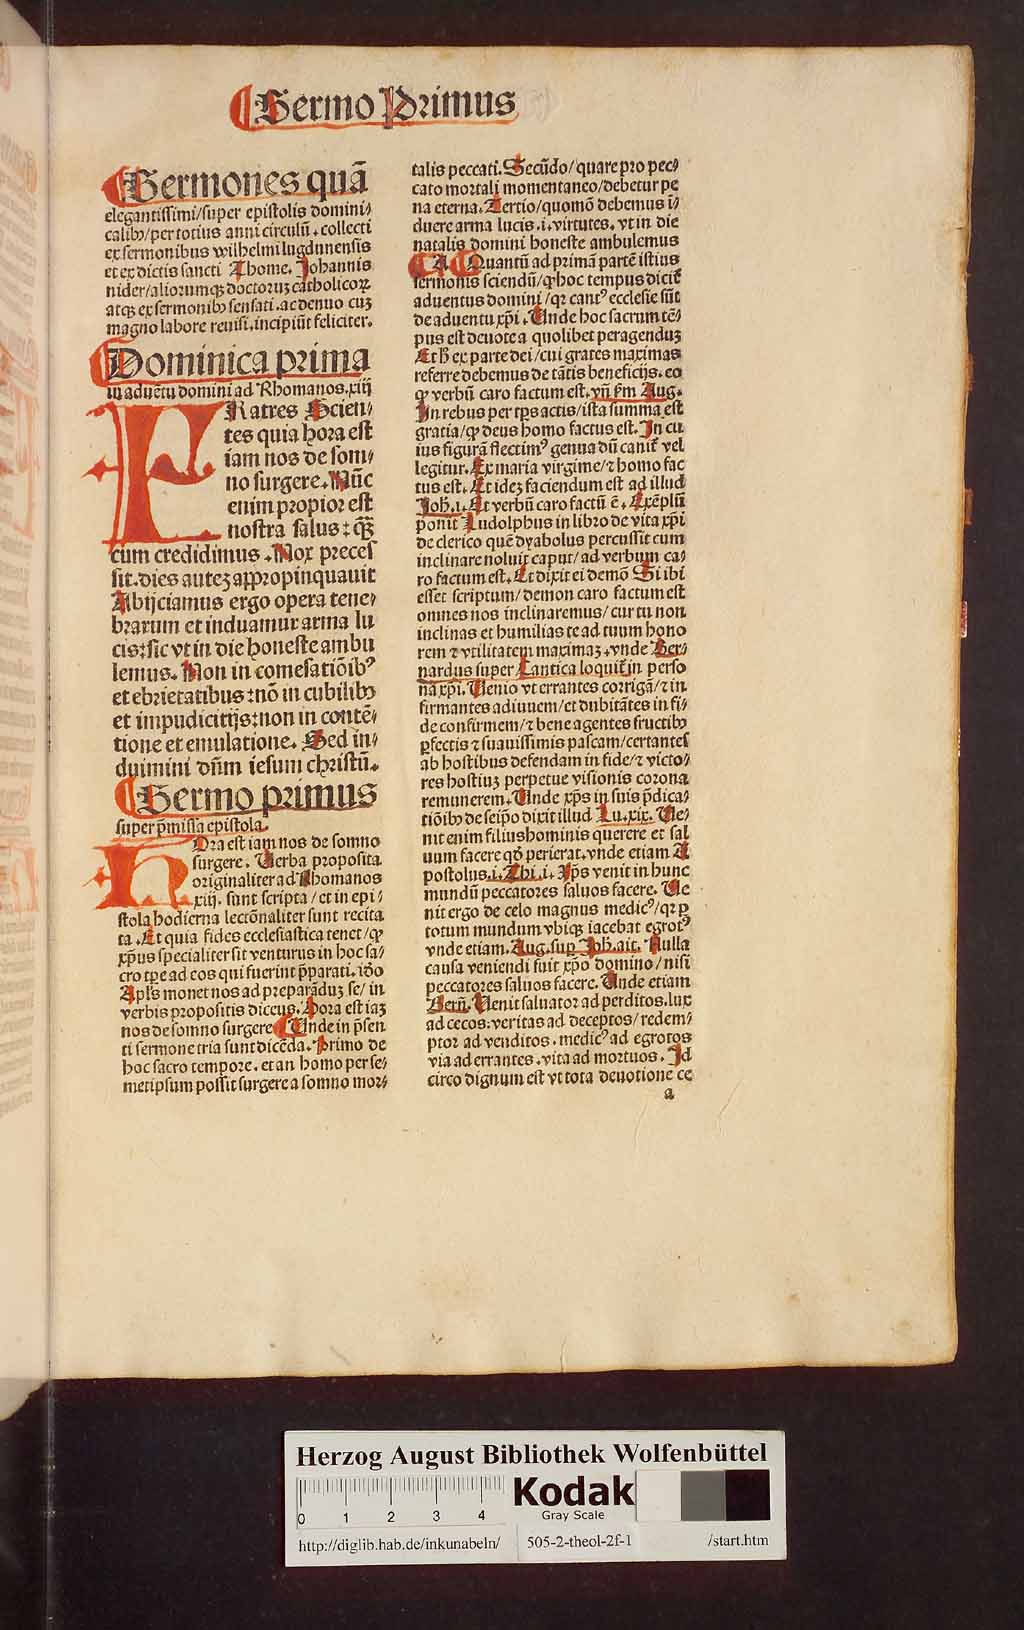 Sermo Primus
Sermones quā
elegantissimi/super epistolis domini⸗
calibꝰ/per totius anni circulū . collecti
ex sermonibus wilhelmi lugdunensis
et ex dictis sancti Thome. Johannis
nider/aliorumqꝫ doctoruꝫ catholicoꝝ
atqꝫ ex sermonibꝰ sensati .ac denuo cuꝫ
magno labore reuisi.incipiūt feliciter.
Dominica prima
in aduētu domini ad Rhomanos.xiij
FRatres Scien⸗
tes quia hora est
iam nos de som⸗
no surgere. Nūc
enim propior est
nostra salus : qꝫ̄
cum credidimus . Nox preces
sit.dies auteꝫ appropinquauit
Abijciamus ergo opera tene⸗
brarum et induamur arma lu
cis:sic vt in die honeste ambu
lemus . Non in comesatiōibꝰ
et ebrietatibus :nō in cubilibꝰ
et impudicitijs:non in contē⸗
tione et emulatione. Sed in⸗
duimini dūm iesum christū.
Sermo primus
super p̄missa epistola
HOra est iam nos de somno
surgere. Verba proposita
originaliter ad Rhomanos
xiij. sunt scripta/et in epi⸗
stola hodierna lectōnaliter sunt recita
ta . Et quia fides ecclesiastica tenet/ꝙ
xp̄us specialiter sit venturus in hoc sa⸗
cro tpe ad eos qui fuerint p̄parati. iđo
Apls monet nos ad preparanduꝫ se/in
verbis propositis dicens. Hora est iaꝫ
nos de somno surgere Unde in p̄sen
ti sermone tria sunt dicēda. Primo de
hoc sacro tempore. et an homo per se⸗
metipsum possit surgere a somno mor⸗
talis peccati. Secūdo/quare pro pec⸗
cato mortali momentaneo/debetur pe
na eterna. Tertio/quomō debemus ī⸗
duere arma lucis .i. virtutes. vt in die
natalis domini honeste ambulemus
A. Quantū ad primā partē istius
sermonis sciendū/ꝙ hoc tempus dicit̄
aduentus domini/qꝛ cantꝰ ecclesie sūt
de aduentu xp̄i . Unde hoc sacrum tē⸗
pus est deuote a quolibet peragenduꝫ
Et h̄ ex parte dei/cui grates maximas
referre debemus de tātis beneficijs. eo
ꝙ verbū caro factum est. vn̄ f̄m Aug.
In rebus per tp̄s actis/ista summa est
gratia/ꝙ deus homo factus est. In cu
ius figurā flectimꝰ genua dū canit̄ vel
legitur. Ex maria virgine/ꝛ homo fac
tus est. Et ideꝫ faciendum est ad illud
Joh̄. i. Et verbū caro factū ē . Exēplū
ponit Ludolphus in libro de vita xp̄i
de clerico quē dyabolus percussit cum
inclinare noluit caput/ad verbum ca⸗
ro factum est. Et dixit ei demō Si ibi
esset scriptum/demon caro factum est
omnes nos inclinaremus/cur tu non
inclinas et humilias te ad tuum hono
rem ꝛ vtilitatem maximaꝫ . vnde Ber⸗
nardus super Cantica loquit̄ in perso
na xp̄i. Uenio vt errantes corrigā/ꝛ in
firmantes adiuuem/et dubitātes in fi⸗
de confirmem/ꝛ bene agentes fructibꝰ
ꝑfectis ꝛ suauissimis pascam/certantes
ab hostibus defendam in fide/ꝛ victo⸗
res hostiuꝫ perpetue visionis corona
remunerem. Unde xp̄s in suis p̄dica⸗
tiōibꝰ de seip̄o dixit illud Lu.xix. Ue⸗
nit enim filius hominis querere et sal
uum facere qđ perierat.vnde etiam A
postolus.i. Thi.i. Xp̄s venit in hunc
mundū peccatores saluos facere. Ue
nit ergo de celo magnus medicꝰ/qꝛ ꝑ
totum mundum vbiqꝫ iacebat egrotꝰ
vnde etiam. Aug. suꝑ Joh̄. ait. Nulla
causa veniendi fuit xp̄o domino/nisi
peccatores saluos facere. Unde etiam
Berñ. Uenit saluator ad perditos. lux
ad cecos: veritas ad deceptos/redem⸗
ptor ad venditos . medicꝰ ad egrotos
via ad errantes . vita ad mortuos . Id
circo dignum est vt tota deuotione ce
a
Herzog August Bibliothek Wolfenbüttel
0 1 2 3 4
Kodak
Gray Scale
http://diglib.hab.de/inkunabeln/ 505-2-theol-2f-1 /start.htm